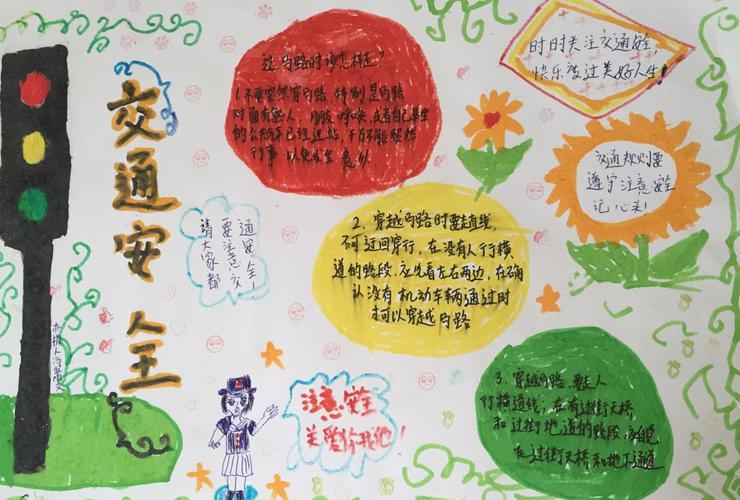 交通安全
过马路时该怎样走?
1.不要突然穿马路,特别是马路
对面有熟人、朋友呼唤,或者自己乘坐
的公共汽车已经进站,千万不能贸然
行事,以免发生意外
时时关注交通安全,
快乐度过美好人生!
交通规则要
遵守注意安全
记心头!
请大家都
要注意交
通安全!
2.穿越马路时要走直线,
不可迂回穿行,在没有人行横
道的路段,应先看左右两边,在确
认没有机动车辆通过时
才可以穿越马路
3.穿越马路,要走人
行横道线,在有过街天桥
和过街地道的路段,
走过街天桥和地下通道
注意安全
关爱你我他!
办报人